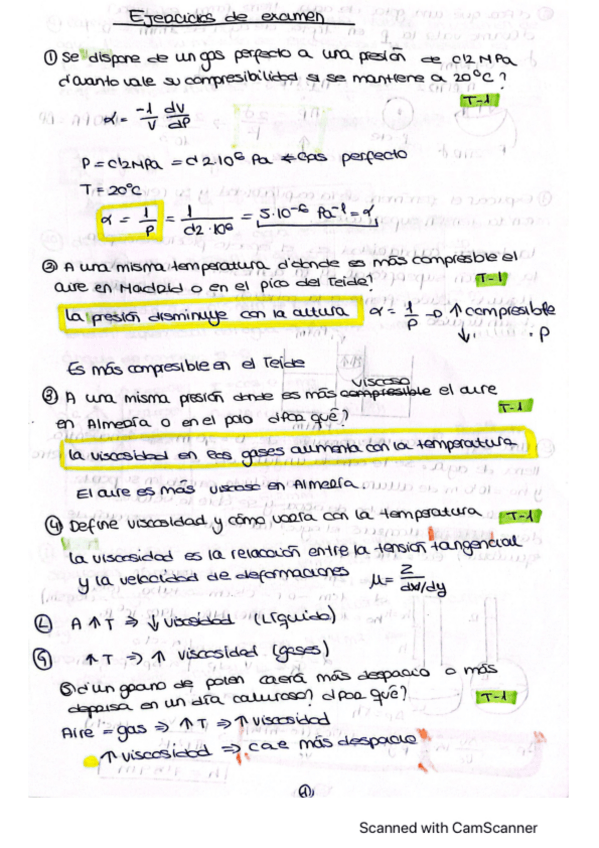 Ejercicios de examen
① Se dispone de un gas perfecto a una presión de 0'2 MPa
¿cuanto vale su compresibilidad si se mantiene a 20°C?
T-1
α = -1/V dV/dP
P = 0'2 MPa = 0'2·10⁶ Pa ← Gas perfecto
T = 20°C
α = 1/P = 1/0'2·10⁶ = 5·10⁻⁶ Pa⁻¹ = α
② A una misma temperatura ¿donde es más compresible el
aire en Madrid o en el pico del Teide?
T-1
La presión disminuye con la altura α = 1/P → ↑ compresible
↓ · P
Es más compresible en el Teide
viscoso
③ A una misma presión donde es más compresible el aire
en Almería o en el polo ¿Por qué?
T-1
la viscosidad en los gases aumenta con la temperatura
El aire es más viscoso en Almería.
④ Define viscosidad y cómo varía con la temperatura
T-1
la viscosidad es la relacción entre la tensión tangencial
y la velocidad de deformaciones μ = Z/dv/dy
Ⓛ A ↑ T ⇒ ↓ viscosidad (Líquido)
Ⓖ ↑ T ⇒ ↑ viscosidad (gases)
⑤ ¿un grano de polen caerá más despacio o más
deprisa en un día caluroso? ¿Por qué?
T-1
Aire = gas ⇒ ↑ T ⇒ ↑ viscosidad
↑ viscosidad ⇒ cae más despacio
①
Scanned with CamScanner